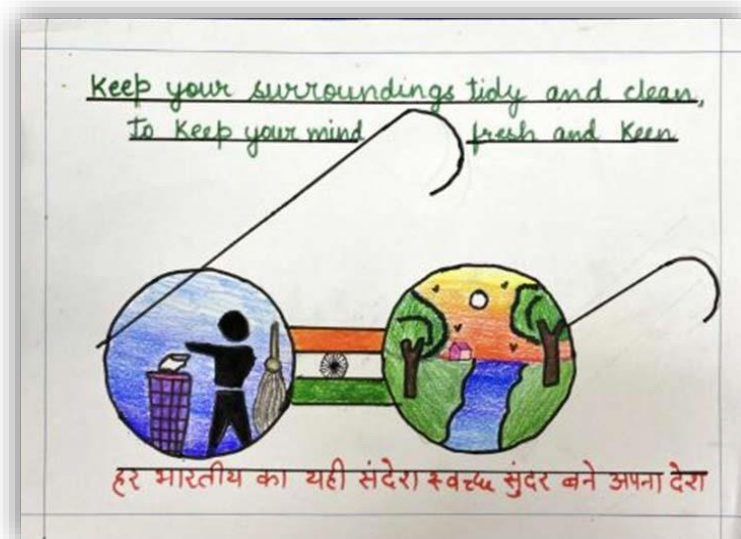 Keep your surroundings tidy and clean,
to Keep your mind fresh and Keen
हर भारतीय का यही संदेश स्वच्छ सुंदर बने अपना देश